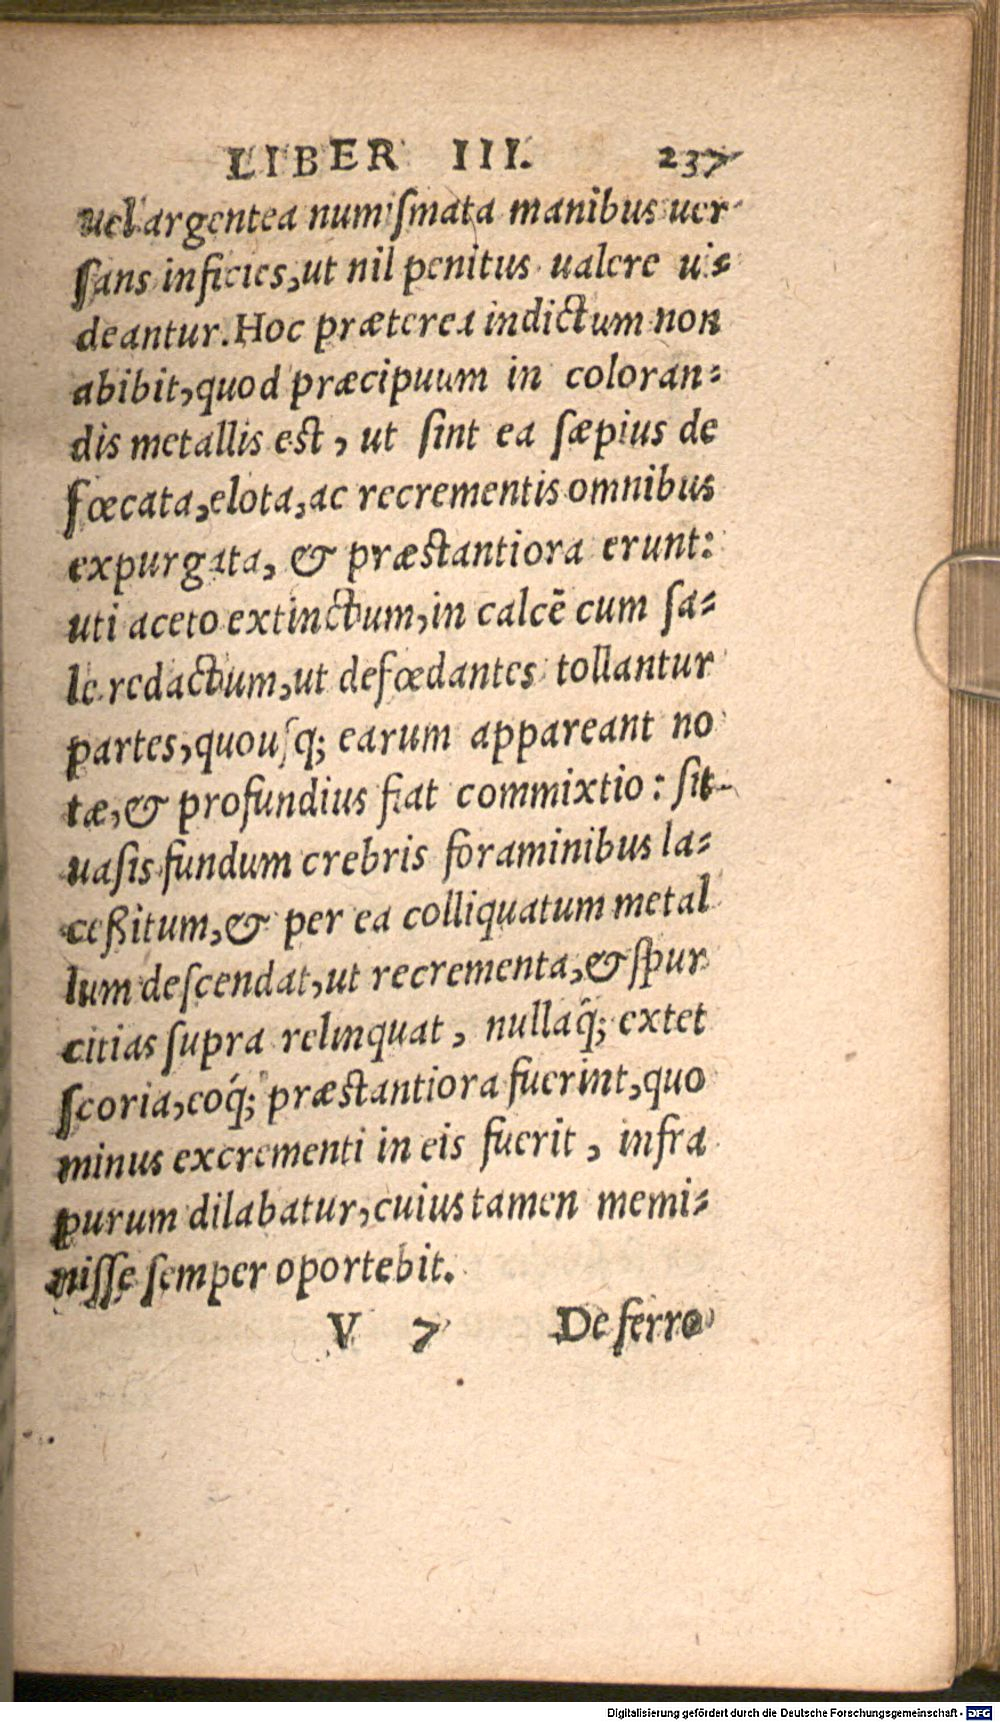 LIBER III. 237
uel argentea numismata manibus uer
sans inficies, ut nil penitus ualere ui-
deantur. Hoc præterea indictum non
abibit, quod præcipuum in coloran-
dis metallis est, ut sint ea sæpius de
fœcata, elota, ac recrementis omnibus
expurgata, & præstantiora erunt:
uti aceto extinctum, in calcē cum sa-
le redactum, ut defœdantes tollantur
partes, quousq; earum appareant no
tæ, & profundius fiat commixtio: sit
uasis fundum crebris foraminibus la-
ceßitum, & per ea colliquatum metal
lum descendat, ut recrementa, & spur
citias supra relinquat, nullaq́; extet
scoria, eoq́; præstantiora fuerint, quo
minus excrementi in eis fuerit, infra
purum dilabatur, cuius tamen memi-
nisse semper oportebit.
V 7 De ferro
Digitalisierung gefördert durch die Deutsche Forschungsgemeinschaft - DFG